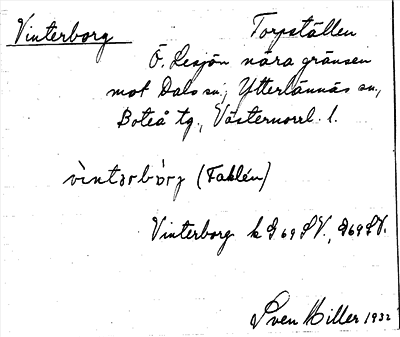 Vinterborg Torpställen
Ö. Lesjön nära gränsen
mot Dals sn., Ytterlännäs sn.,
Boteå tg., Västernorrl. l.
vìntərbòrg (Fahlén)
Vinterborg k G 69 SV., 69 SV.
Sven Hiller 1932